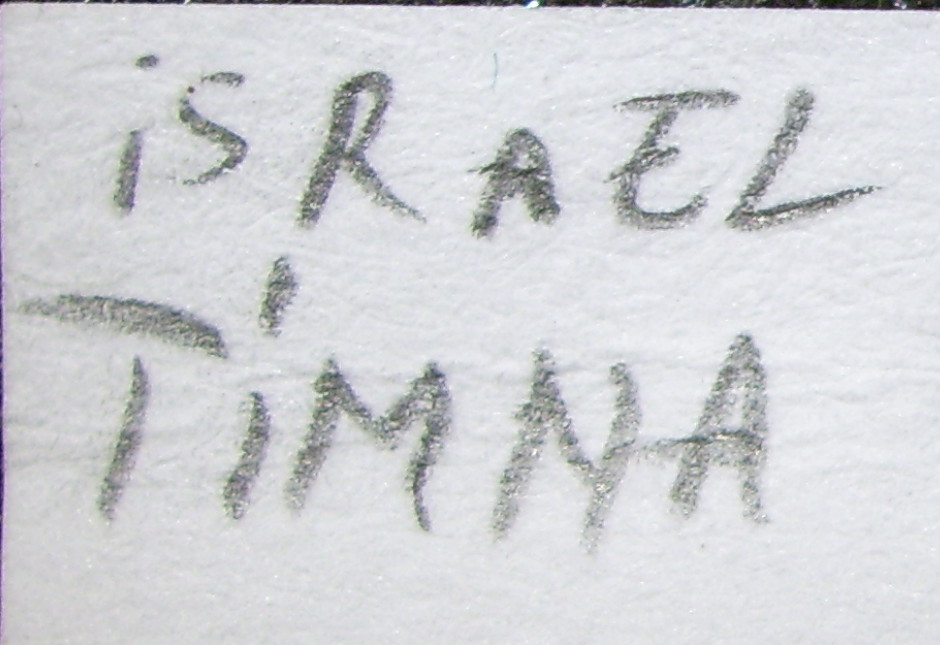 iSRAEL
TiMNA